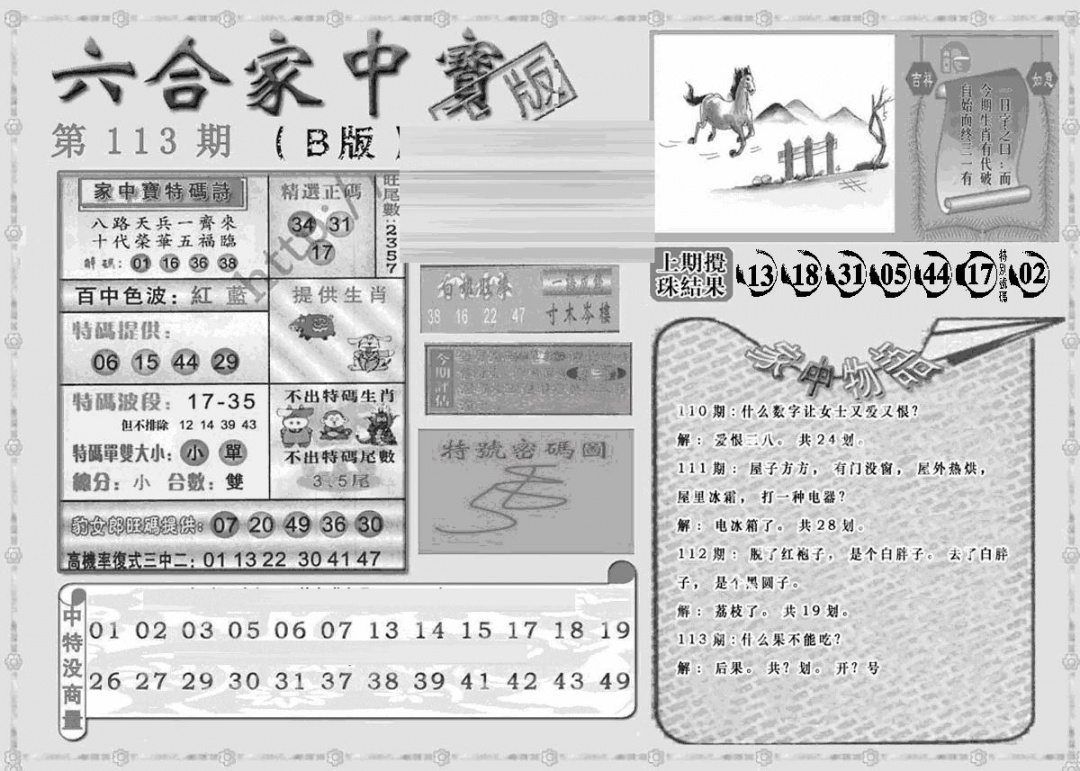 六合家中寶
版
第 113 期
（B版）
家中寶特碼詩
八路天兵一齊來
十代榮華五福臨
解碼：01 16 36 38
精選正碼
34 31
17
旺尾數:2357
http:/
百中色波：紅 藍
提供生肖
特碼提供：
06 15 44 29
特碼波段：17-35
但不排除 12 14 39 43
特碼單雙大小：小 單
總分：小 合數：雙
不出特碼生肖
不出特碼尾數
3.5尾
豹女郎旺碼提供：07 20 49 36 30
高機率復式三中二：01 13 22 30 41 47
38 16 22 47
寸木岑樓
今期評估
特號密碼圖
吉祥
如意
一日字之曰：而
今期生肖有代破
自始而终三一有
上期攪珠結果
13 18 31 05 44 17 特別號碼 02
家中物語
110 期：什么数字让女士又爱又恨？
解： 爱恨三八。 共 24 划。
111 期： 屋子方方， 有门没窗， 屋外热烘，
屋里冰霜， 打一种电器？
解： 电冰箱了。 共 28 划。
112 期： 脱了红袍子， 是个白胖子。 去了白胖
子， 是个黑圆子。
解： 荔枝了。 共 19 划。
113 期：什么果不能吃？
解： 后果。 共？ 划。 开？ 号
中特没商量
01 02 03 05 06 07 13 14 15 17 18 19
26 27 29 30 31 37 38 39 41 42 43 49